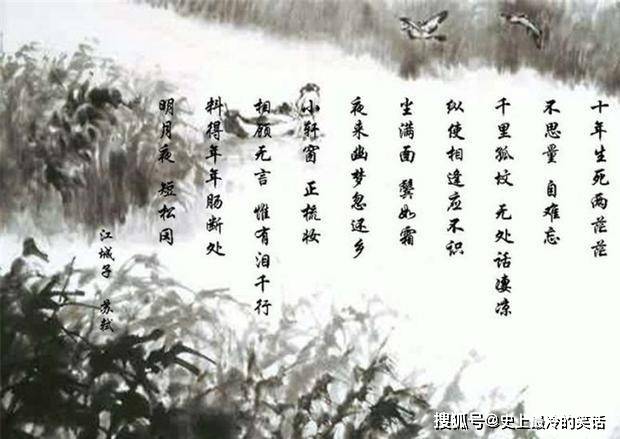 十年生死两茫茫
不思量 自难忘
千里孤坟 无处话凄凉
纵使相逢应不识
尘满面 鬓如霜
夜来幽梦忽还乡
小轩窗 正梳妆
相顾无言 惟有泪千行
料得年年肠断处
明月夜 短松冈
江城子 苏轼
搜狐号@史上最冷的笑话